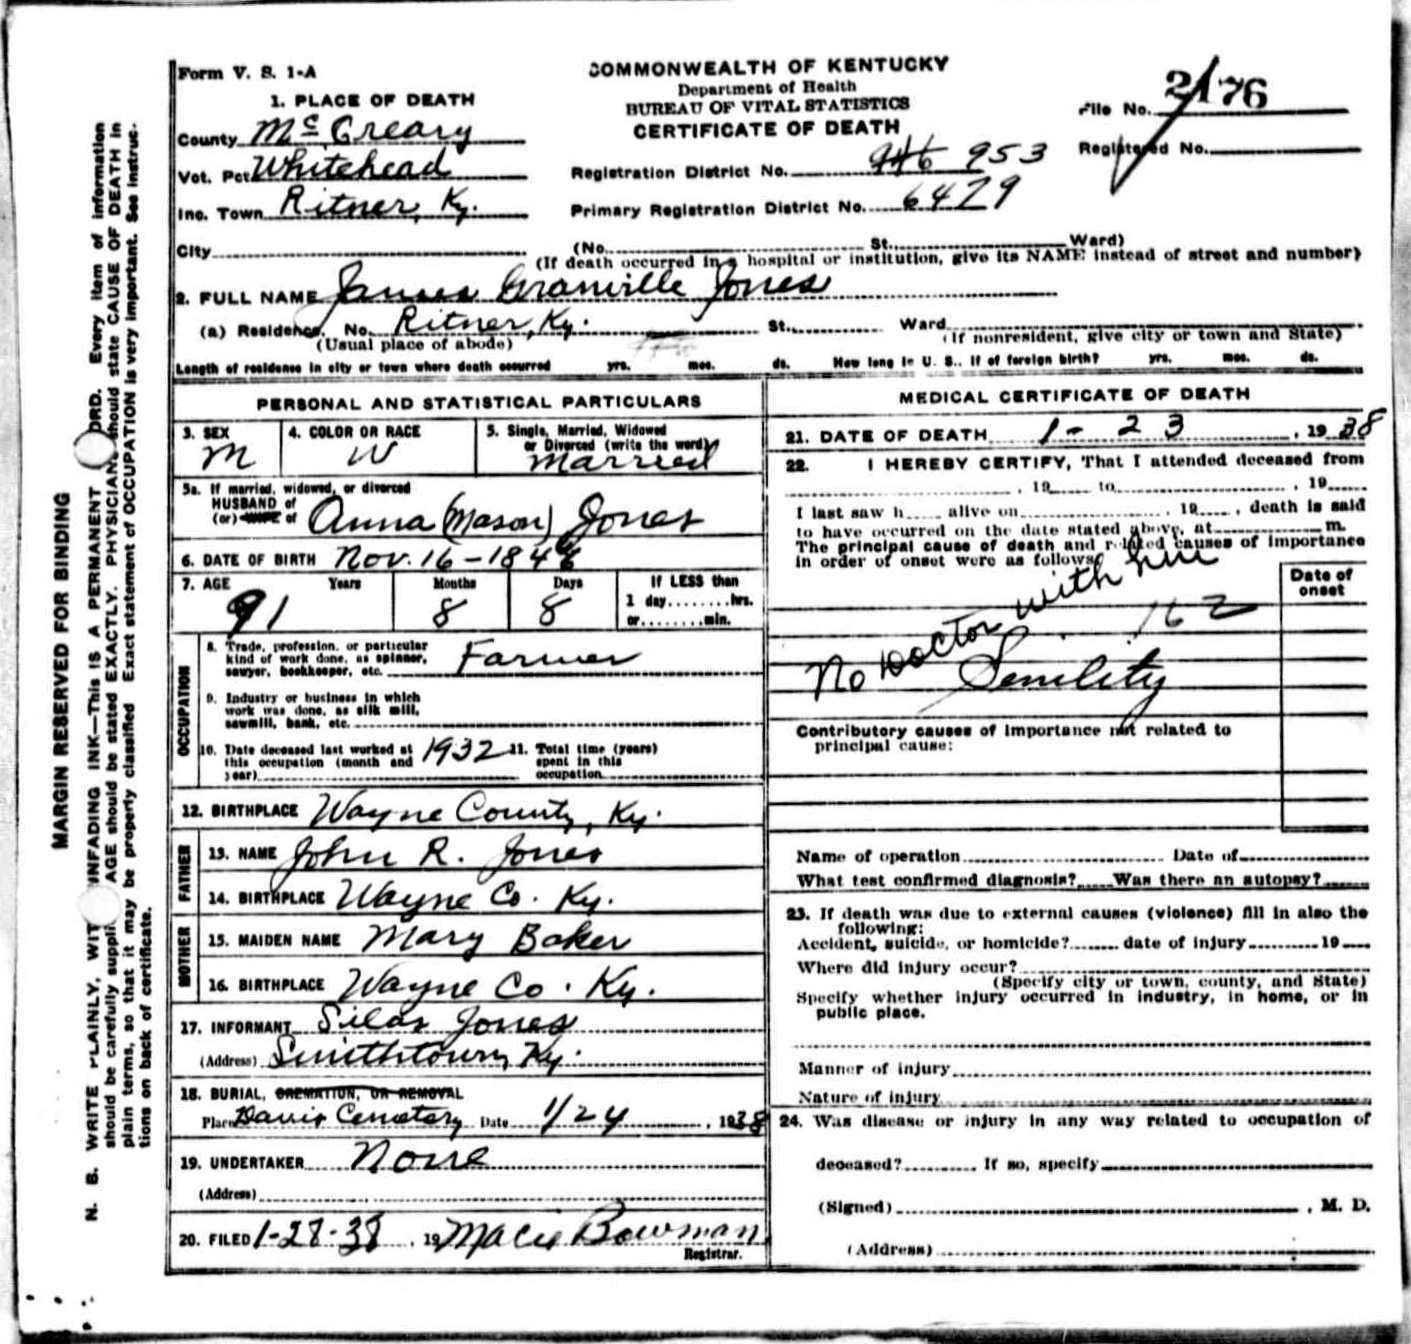 Form V. S. 1-A
COMMONWEALTH OF KENTUCKY
Department of Health
BUREAU OF VITAL STATISTICS
CERTIFICATE OF DEATH
File No. 2176
Registered No.
1. PLACE OF DEATH
County McCreary
Vot. Pct Whitehead
Inc. Town Ritner, Ky.
City
Registration District No. 946 953
Primary Registration District No. 6479
(No. St. Ward)
(If death occurred in a hospital or institution, give its NAME instead of street and number)
2. FULL NAME James Granville Jones
(a) Residence. No. Ritner, Ky. St. Ward
(Usual place of abode) (If nonresident, give city or town and State)
Length of residence in city or town where death occurred yrs. mos. ds. How long in U. S., if of foreign birth? yrs. mos. ds.
PERSONAL AND STATISTICAL PARTICULARS
3. SEX M
4. COLOR OR RACE W
5. Single, Married, Widowed
or Divorced (write the word)
Married
5a. If married, widowed, or divorced
HUSBAND of
(or) WIFE of Anna (Mason) Jones
6. DATE OF BIRTH Nov. 16-1846
7. AGE Years Months Days If LESS than
91 8 8 1 day........hrs.
or........min.
OCCUPATION
8. Trade, profession, or particular
kind of work done, as spinner,
sawyer, bookkeeper, etc. Farmer
9. Industry or business in which
work was done, as silk mill,
sawmill, bank, etc.
10. Date deceased last worked at
this occupation (month and
year) 1932
11. Total time (years)
spent in this
occupation
12. BIRTHPLACE Wayne County, Ky.
FATHER
13. NAME John R. Jones
14. BIRTHPLACE Wayne Co. Ky.
MOTHER
15. MAIDEN NAME Mary Baker
16. BIRTHPLACE Wayne Co. Ky.
17. INFORMANT Silas Jones
(Address) Smithtown, Ky.
18. BURIAL, CREMATION, OR REMOVAL
Place Davis Cemetary Date 1/24, 1938
19. UNDERTAKER None
(Address)
20. FILED 1-28-38, 19 Macie Bowman
Registrar.
MEDICAL CERTIFICATE OF DEATH
21. DATE OF DEATH 1-23, 1938
22. I HEREBY CERTIFY, That I attended deceased from
, 19 to , 19
I last saw h alive on , 19 , death is said
to have occurred on the date stated above, at m.
The principal cause of death and related causes of importance
in order of onset were as follows:
Date of
onset
No Doctor with him
162
Senility
Contributory causes of importance not related to
principal cause:
Name of operation Date of
What test confirmed diagnosis? Was there an autopsy?
23. If death was due to external causes (violence) fill in also the
following:
Accident, suicide, or homicide? date of injury 19
Where did injury occur?
(Specify city or town, county, and State)
Specify whether injury occurred in industry, in home, or in
public place.
Manner of injury
Nature of injury
24. Was disease or injury in any way related to occupation of
deceased? If so, specify
(Signed) , M. D.
(Address)
MARGIN RESERVED FOR BINDING
N. B. WRITE PLAINLY, WIT NFADING INK—THIS IS A PERMANENT ORD. Every item of information
should be carefully suppli AGE should be stated EXACTLY. PHYSICIANS should state CAUSE OF DEATH in
plain terms, so that it may be properly classified. Exact statement of OCCUPATION is very important. See instruc-
tions on back of certificate.